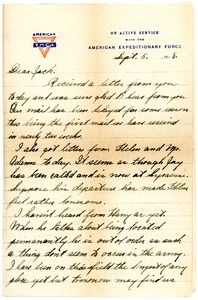 AMERICAN
YMCA
ON ACTIVE SERVICE
WITH THE
AMERICAN EXPEDITIONARY FORCE
Sept. 5. 1918.
Dear Jack.
Received a letter from you
today and was sure glad to hear from you
Our mail has been delayed for some reason
this being the first mail we have received
in nearly two weeks.
I also got letter from Helen and Mr.
Adams today. It seems as though Jay
has been called and is now at Syracuse.
Suppose his departure has made Helen
feel rather lonesome.
I havent heard from Harry as yet.
When he talks about being located
permanently he is out of order as such
a thing dont seem to occur in the army.
I have been on this field the longest of any
place yet but tomorrow may find us